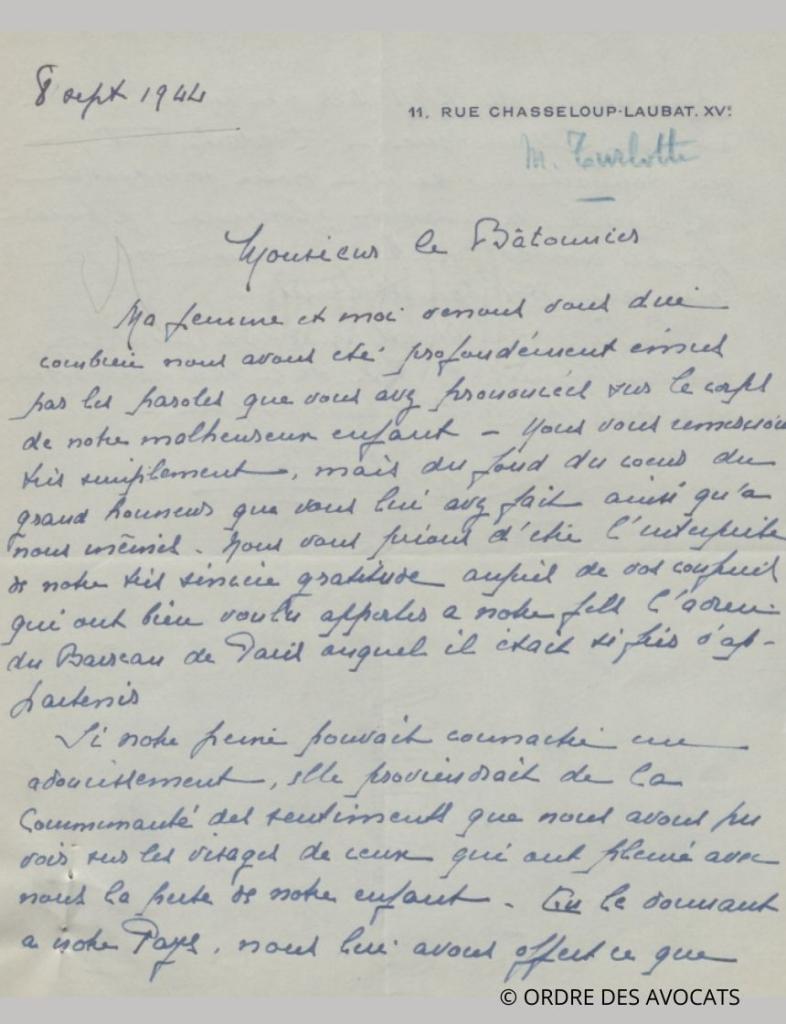 8 sept 1944
11, RUE CHASSELOUP-LAUBAT. XVe
M. Turlotte
Monsieur le Bâtonnier
Ma femme et moi venons vous dire
combien nous avons été profondément émus
par les paroles que vous avez prononcées sur le corps
de notre malheureux enfant – Nous vous remercions
très simplement, mais du fond du coeur du
grand honneur que vous lui avez fait ainsi qu'à
nous mêmes. Nous vous prions d'être l'interprète
de notre très sincère gratitude auprès de vos confrères
qui ont bien voulu apporter a notre fils l'adieu
du Barreau de Paris auquel il était si fier d'ap-
partenir
Si notre peine pouvait connaitre un
adoucissement, elle proviendrait de la
Communauté des sentiments que nous avons pu
voir sur les visages de ceux qui ont pleuré avec
nous la perte de notre enfant. En le donnant
a notre Pays, nous lui avons offert ce que
© ORDRE DES AVOCATS